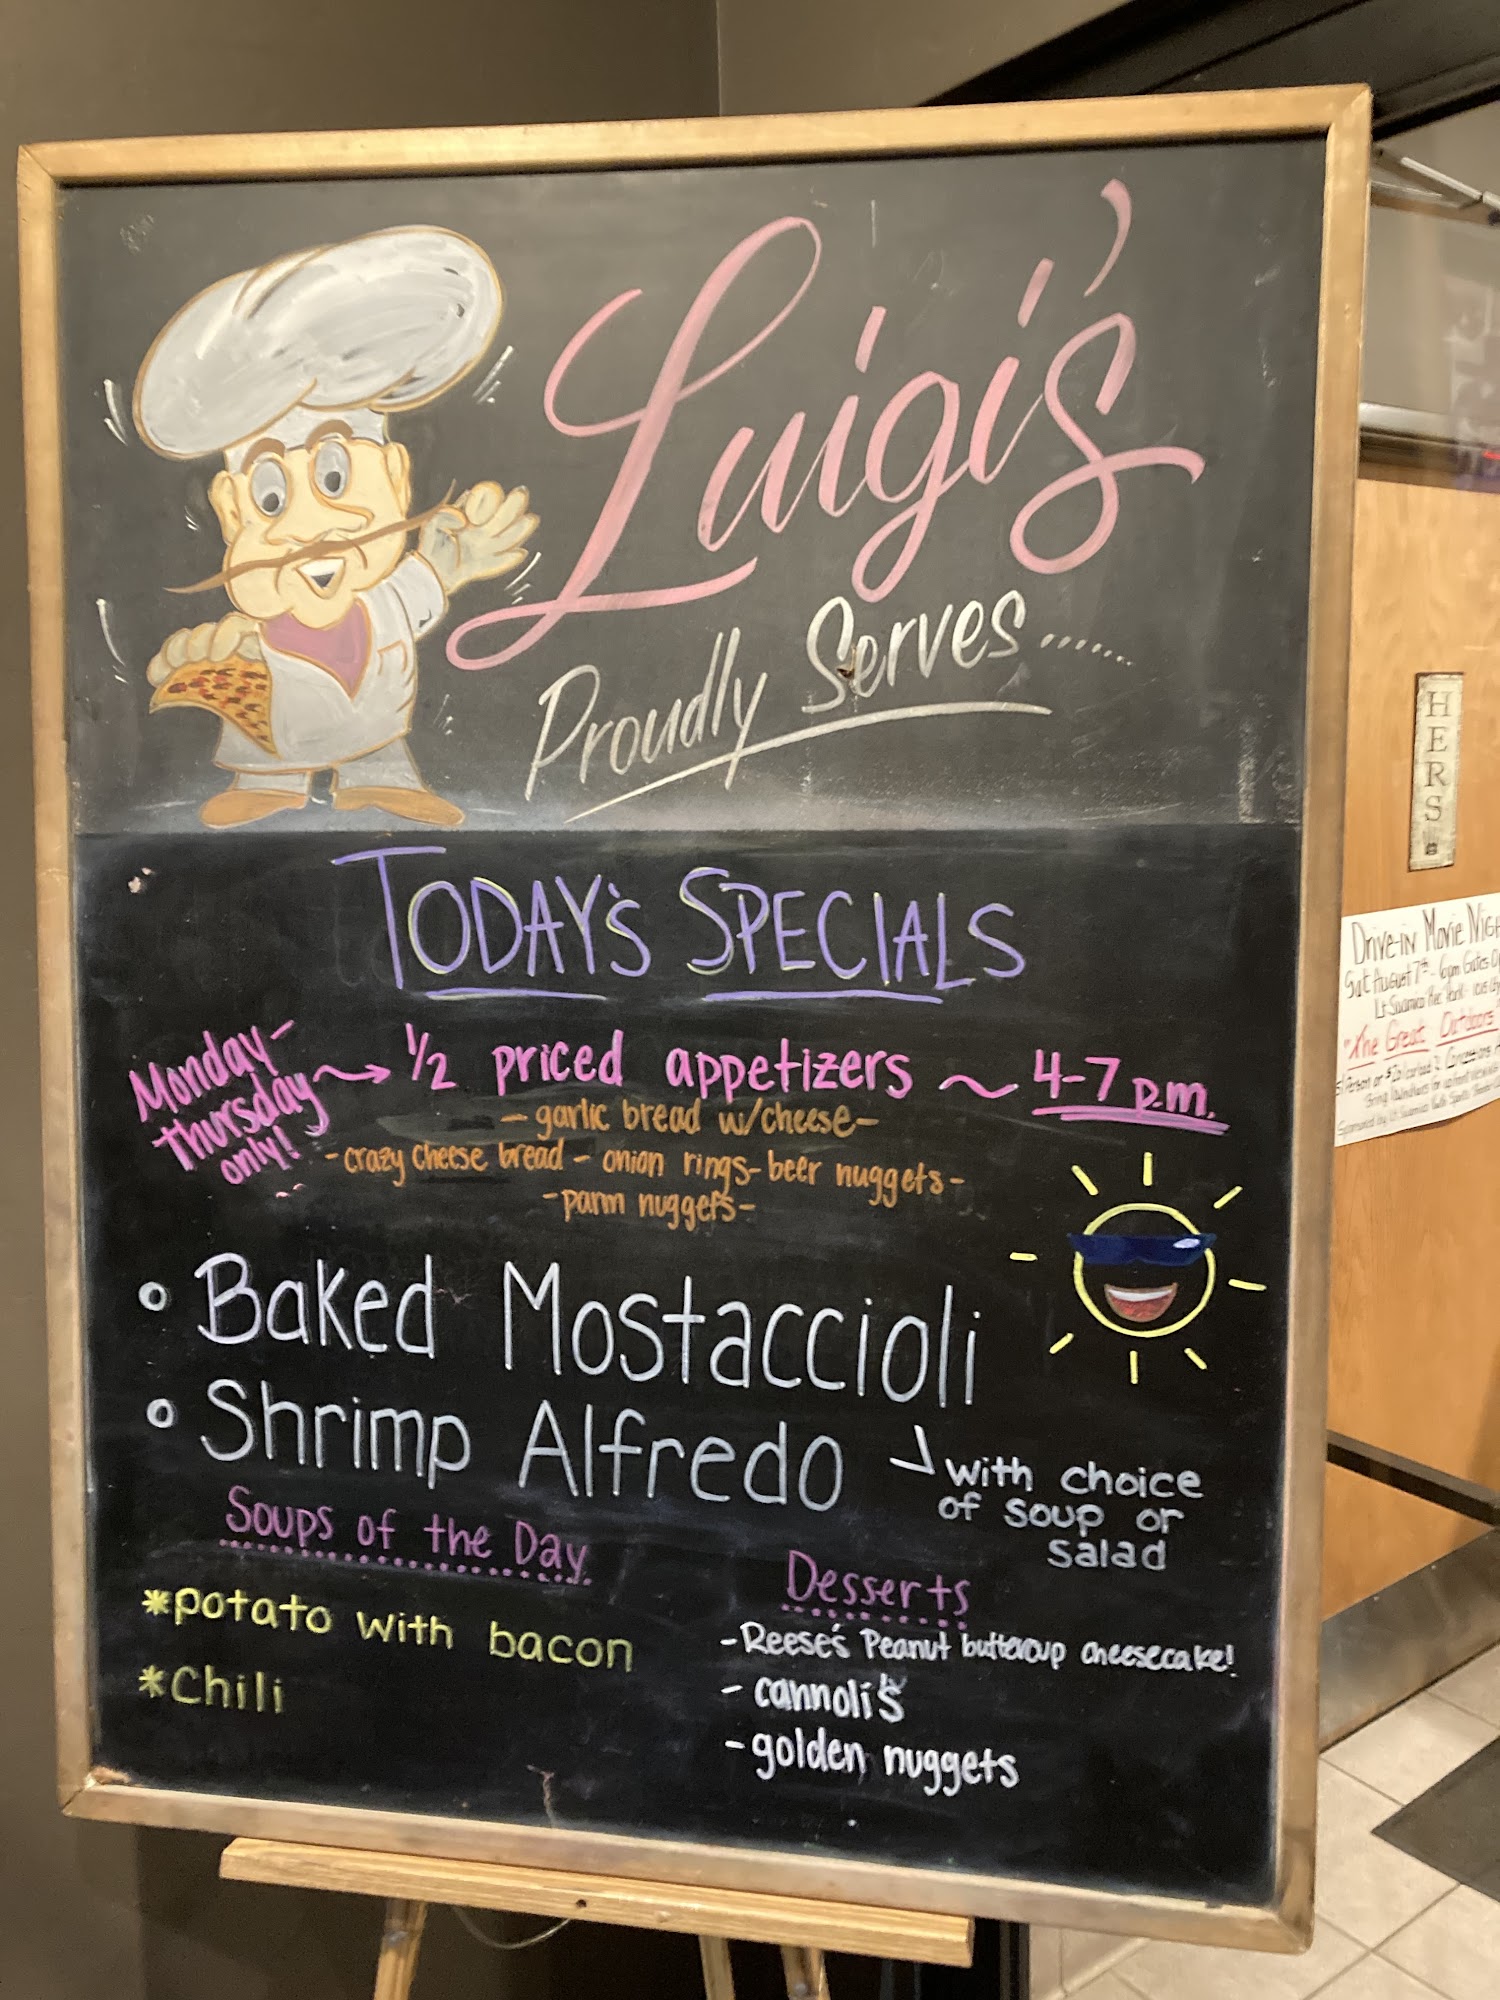 Luigi's
Proudly Serves......
TODAY'S SPECIALS
Monday-
Thursday
only!
1/2 priced appetizers ~ 4-7 p.m.
- garlic bread w/cheese -
- crazy cheese bread - onion rings - beer nuggets -
- parm nuggets -
Baked Mostaccioli
Shrimp Alfredo
with choice
of soup or
salad
Soups of the Day
*potato with bacon
*Chili
Desserts
- Reese's Peanut buttercup cheesecake!
- cannoli's
- golden nuggets
HERS
Drive-in Movie
Sat August 7th - 6pm Gates
"The Great Outdoors"